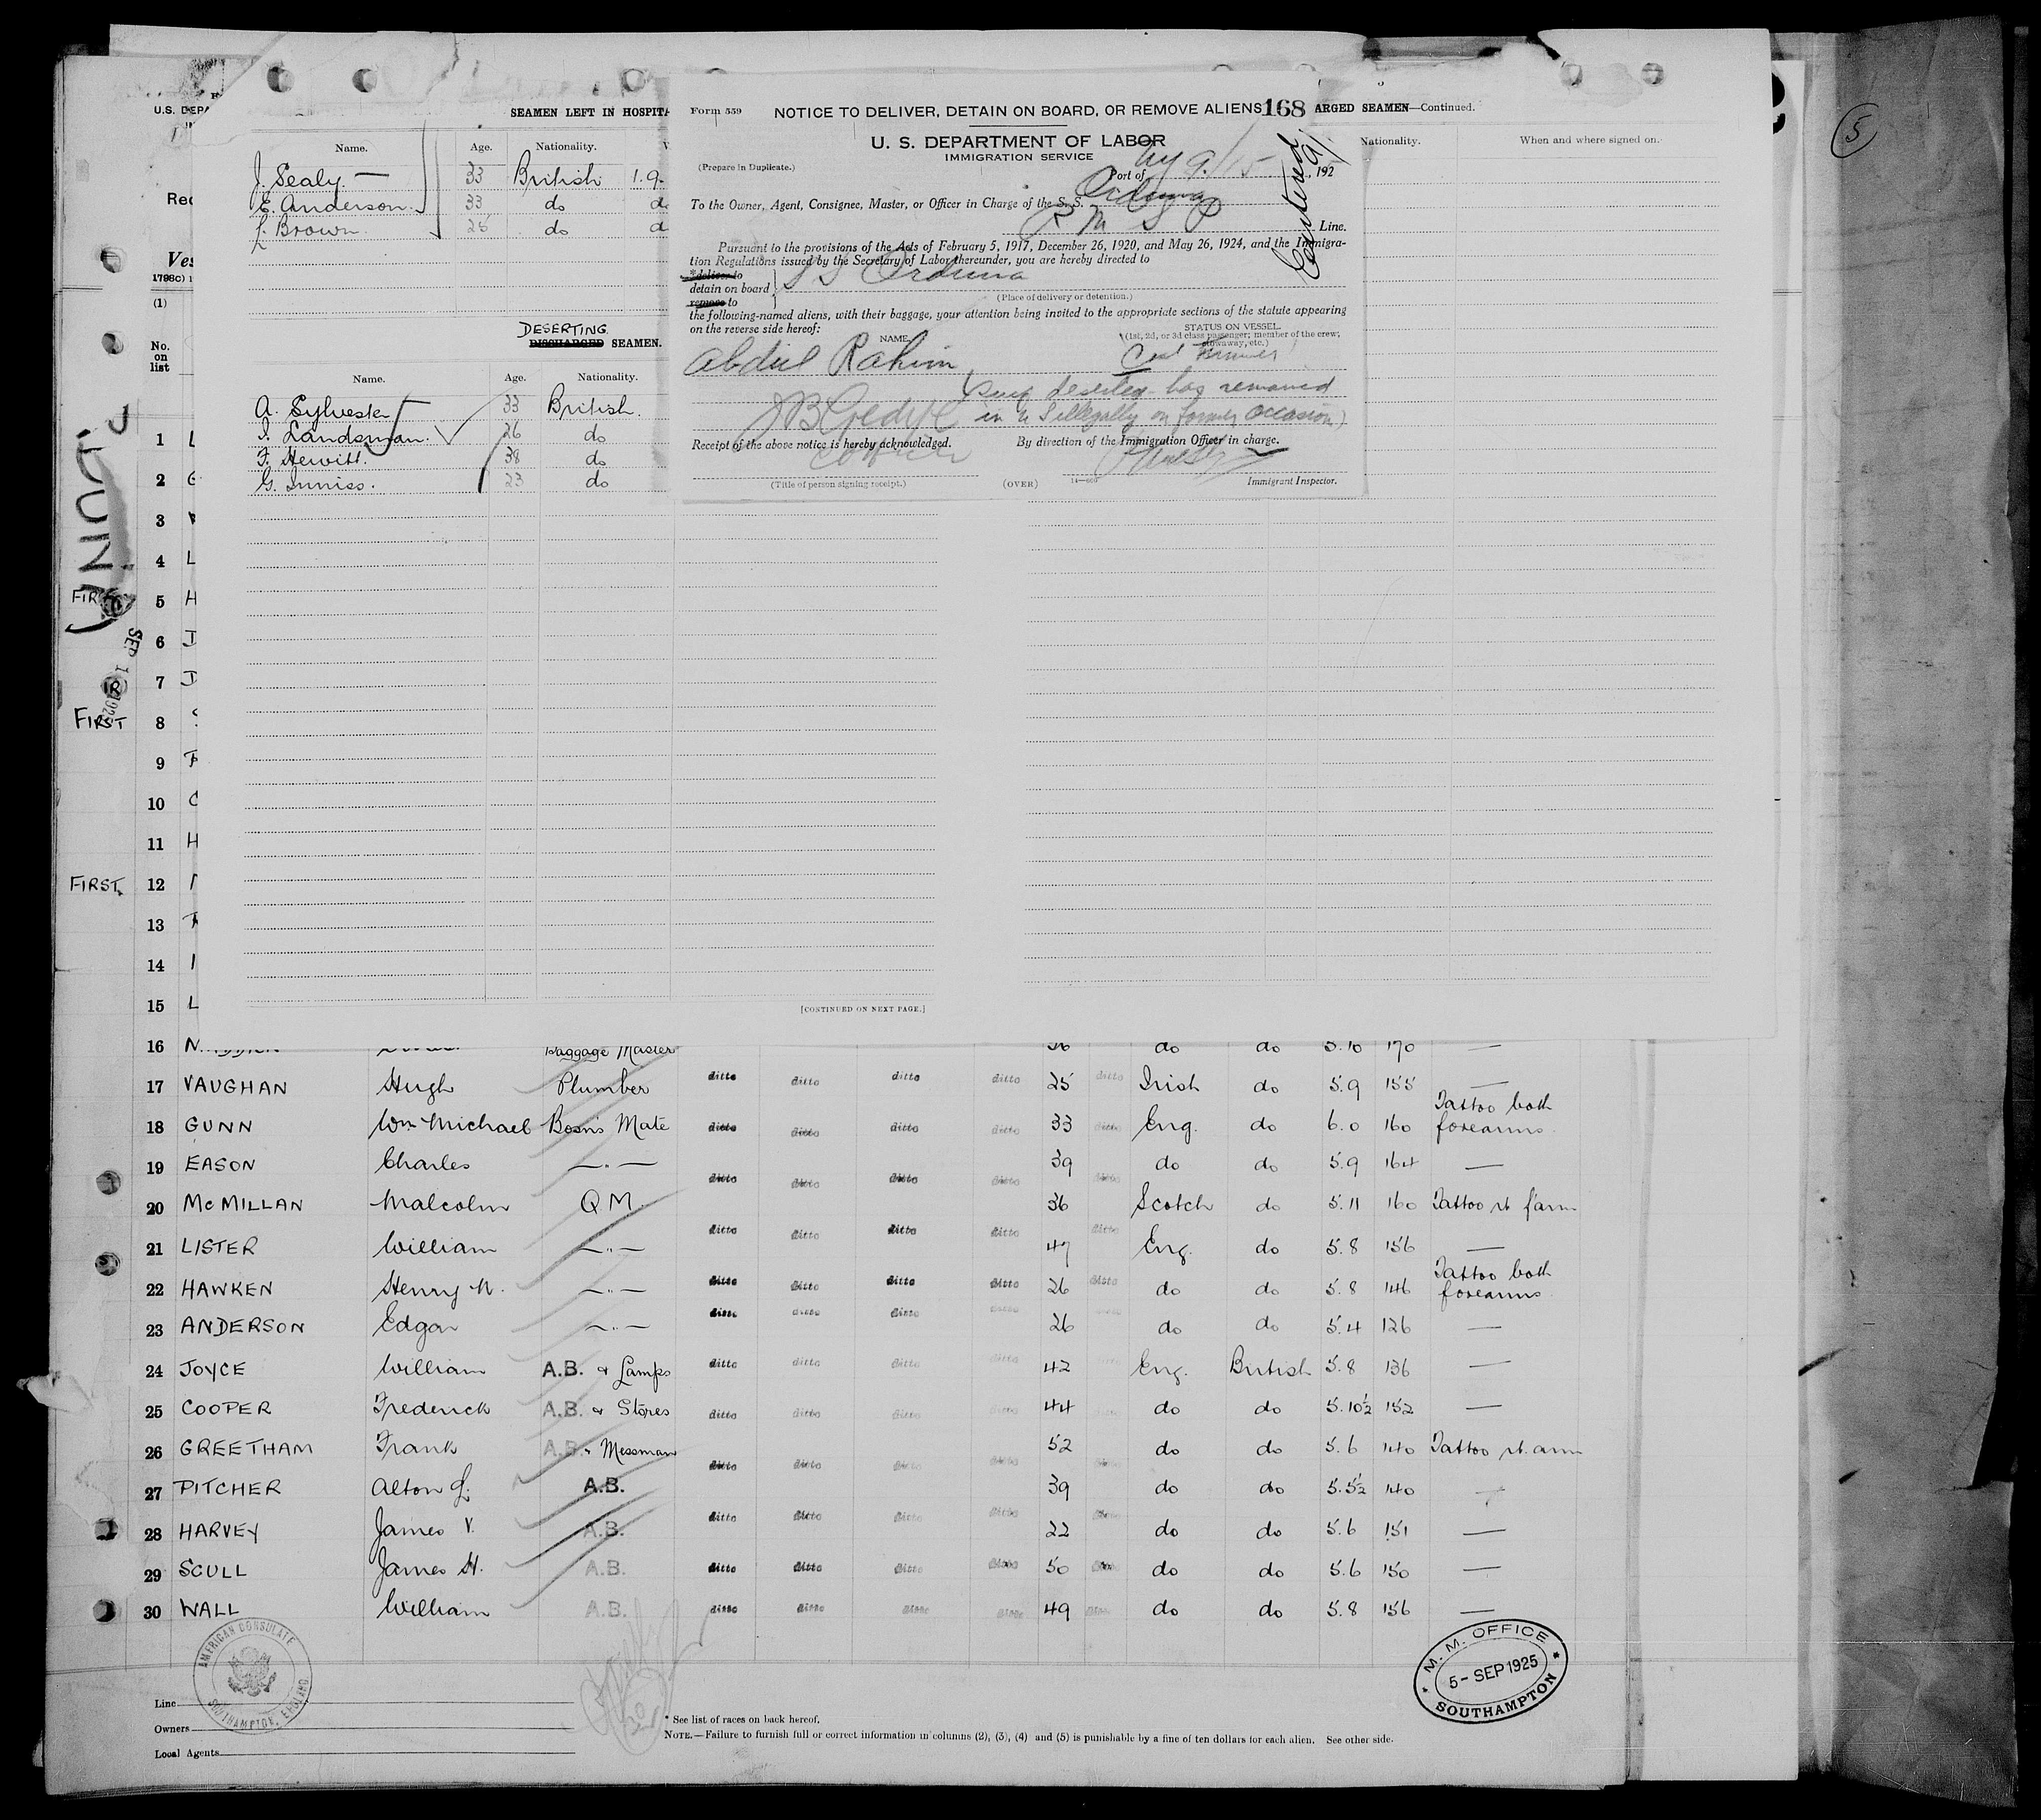 5
SEAMEN LEFT IN HOSPITA
Name. Age. Nationality.
J. Sealy. — 33 British 1.9.
E. Anderson. 33 do d
L. Brown. 25 do d
DESERTING
DISCHARGED SEAMEN.
Name. Age. Nationality.
A. Sylvester 33 British.
I. Landsman. 26 do
F. Hewitt. 38 do
G. Inniss. 23 do
[CONTINUED ON NEXT PAGE.]
ARGED SEAMEN—Continued.
Nationality. When and where signed on.
Form 559
NOTICE TO DELIVER, DETAIN ON BOARD, OR REMOVE ALIENS 168
U. S. DEPARTMENT OF LABOR
IMMIGRATION SERVICE
(Prepare in Duplicate.)
Port of NY 9/15, 192
Entered
To the Owner, Agent, Consignee, Master, or Officer in Charge of the S. S. Orduna
R M S P Line.
Pursuant to the provisions of the Acts of February 5, 1917, December 26, 1920, and May 26, 1924, and the Immigra-
tion Regulations issued by the Secretary of Labor thereunder, you are hereby directed to
*deliver to
detain on board
remove to
S S Orduna
(Place of delivery or detention.)
the following-named aliens, with their baggage, your attention being invited to the appropriate sections of the statute appearing
on the reverse side hereof:
NAME
STATUS ON VESSEL
(1st, 2d, or 3d class passenger; member of the crew;
stowaway, etc.)
Abdul Rahim
deserter has remained
in U S illegally on former occasion)
Receipt of the above notice is hereby acknowledged.
By direction of the Immigration Officer in charge.
(Title of person signing receipt.)
(OVER)
Immigrant Inspector.
U.S. DEPA
Rec
Ves
(1)
No.
on
list
1 L
2 G
3
4 L
5 H
6 D
7 D
8
9
10 C
11 H
12
13
14
15 L
FIRST
FIRST
FIRST
16 N Baggage Master 36 do do 5.10 170 —
17 VAUGHAN Hugh Plumber ditto ditto ditto ditto 25 ditto Irish do 5.9 155 —
18 GUNN Wm Michael Bosn's Mate ditto ditto ditto ditto 33 ditto Eng. do 6.0 160 Tattoo both forearms.
19 EASON Charles —"— ditto ditto ditto ditto 39 ditto do do 5.9 164 —
20 McMILLAN Malcolm Q M. ditto ditto ditto ditto 36 ditto Scotch do 5.11 160 Tattoo rt f'arm
21 LISTER William —"— ditto ditto ditto ditto 47 ditto Eng. do 5.8 156 —
22 HAWKEN Henry N. —"— ditto ditto ditto ditto 26 ditto do do 5.8 146 Tattoo both forearms.
23 ANDERSON Edgar —"— ditto ditto ditto 26 do do 5.4 126 —
24 JOYCE William A.B. & Lamps ditto ditto ditto ditto 42 Eng. British 5.8 136 —
25 COOPER Frederick A.B. & Stores ditto ditto ditto ditto 44 do do 5.10½ 152 —
26 GREETHAM Frank A.B. & Messman ditto ditto ditto ditto 52 ditto do do 5.6 140 Tattoo rt. arm
27 PITCHER Alton J. A.B. 39 do do 5.5½ 140 —
28 HARVEY James V. A.B. ditto ditto ditto ditto 22 ditto do do 5.6 151 —
29 SCULL James H. A.B. ditto ditto ditto ditto 50 ditto do do 5.6 150 —
30 WALL William A.B. ditto ditto ditto ditto 49 ditto do do 5.8 156 —
AMERICAN CONSULATE
SOUTHAMPTON, ENGLAND
M. M. OFFICE
5 - SEP 1925
SOUTHAMPTON
Line
Owners
Local Agents
* See list of races on back hereof.
NOTE.—Failure to furnish full or correct information in columns (2), (3), (4) and (5) is punishable by a fine of ten dollars for each alien. See other side.